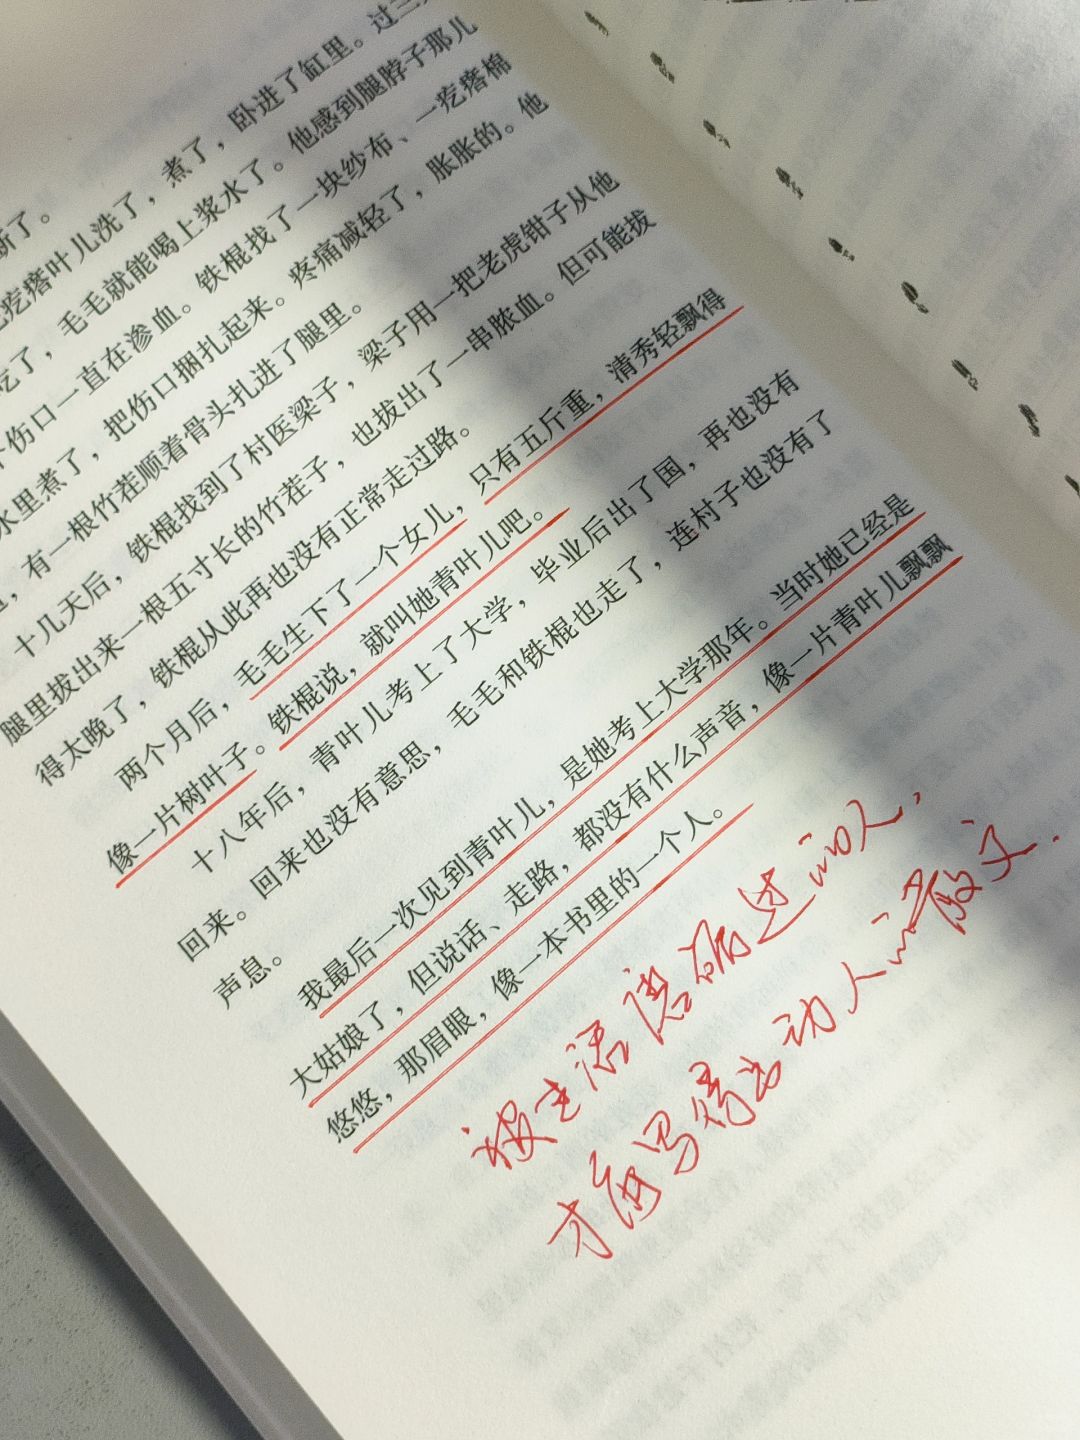 断了。
疙瘩叶儿洗了，煮了，卧进了缸里。过三
吃了，毛毛就能喝上浆水了。他感到腿脖子那儿
个伤口一直在渗血。铁棍找了一块纱布、一疙瘩棉
水里煮了，把伤口捆扎起来。疼痛减轻了，胀胀的。他
，有一根竹茬顺着骨头扎进了腿里。
十几天后，铁棍找到了村医梁子，梁子用一把老虎钳子从他
腿里拔出来一根五寸长的竹茬子，也拔出了一串脓血。但可能拔
得太晚了，铁棍从此再也没有正常走过路。
两个月后，毛毛生下了一个女儿，只有五斤重，清秀轻飘得
像一片树叶子。铁棍说，就叫她青叶儿吧。
十八年后，青叶儿考上了大学，毕业后出了国，再也没有
回来。回来也没有意思，毛毛和铁棍也走了，连村子也没有了
声息。
我最后一次见到青叶儿，是她考上大学那年。当时她已经是
大姑娘了，但说话、走路，都没有什么声音，像一片青叶儿飘飘
悠悠，那眉眼，像一本书里的一个人。
被生活磨砺过的人，
才能写得出动人的散文.